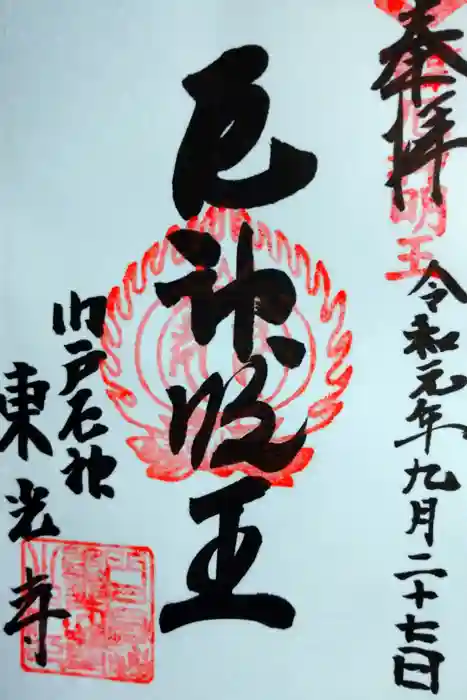 奉拝
令和元年九月二十七日
厄神明王
門戸厄神
東光寺